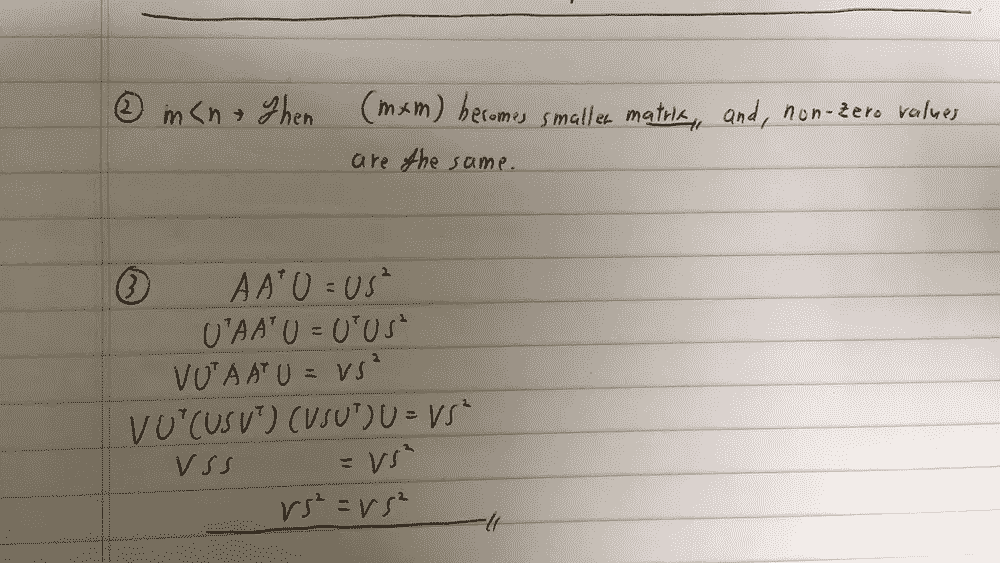 ② m<n → Then (m×m) becomes smaller matrix, and, non-zero values
are the same.
③ AAᵀU = US²
UᵀAAᵀU = UᵀUS²
VUᵀAAᵀU = VS²
VUᵀ(USVᵀ)(VSUᵀ)U = VS²
VSS = VS²
VS² = VS²